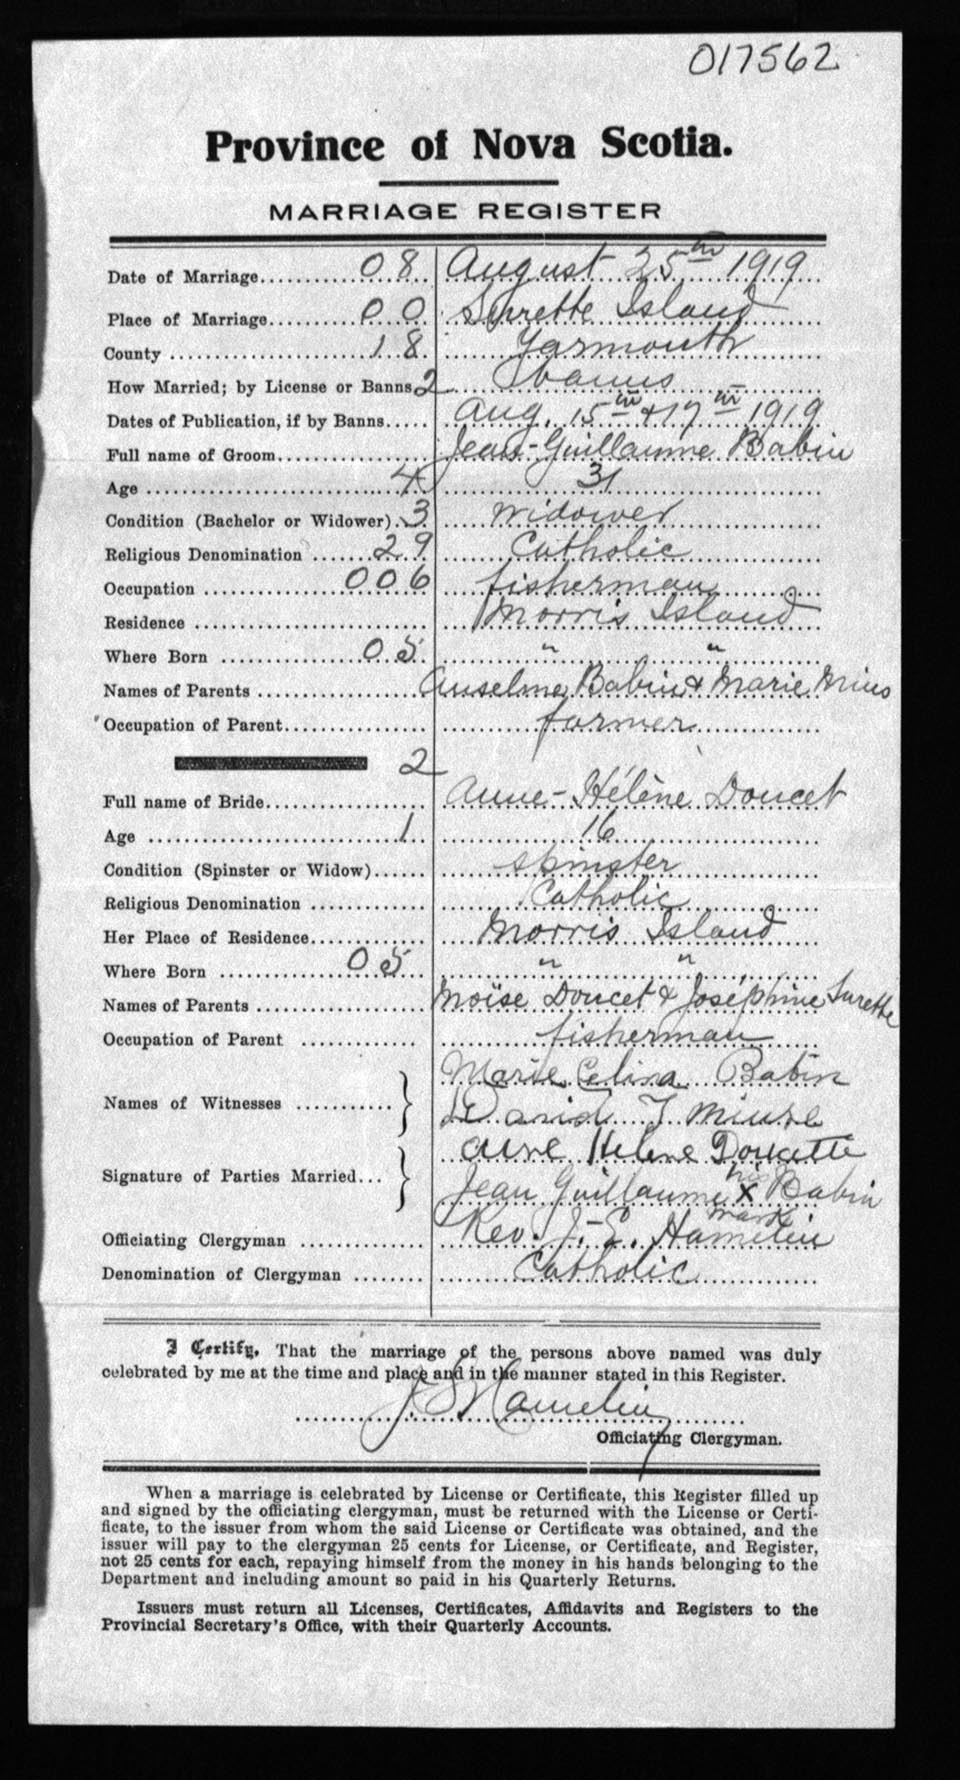 017562
Province of Nova Scotia.
MARRIAGE REGISTER
Date of Marriage.............08. August 25th 1919
Place of Marriage............00. Surrette Island
County .....................18. Yarmouth
How Married; by License or Banns 2 banns
Dates of Publication, if by Banns..... Aug. 15th & 17th 1919
Full name of Groom.............. Jean-Guillaume Babin
Age ..........................4 31
Condition (Bachelor or Widower).3. widower
Religious Denomination ......29 Catholic
Occupation ..................006 fisherman
Residence ........................ Morris Island
Where Born ................05 " "
Names of Parents ................. Anselme Babin & Marie Mius
Occupation of Parent.............. farmer
2
Full name of Bride................ Anne-Hélène Doucet
Age ..........................1 16
Condition (Spinster or Widow)...... spinster
Religious Denomination ............ Catholic
Her Place of Residence............ Morris Island
Where Born ................05 " "
Names of Parents ................. Moïse Doucet & Joséphine Surette
Occupation of Parent ............ fisherman
Names of Witnesses ........... } Marie Celina Babin
David J Miuse
Signature of Parties Married... } Anne Helene Doucette
Jean Guillaume his X mark Babin
Officiating Clergyman ............. Rev. J.-E. Hamelin
Denomination of Clergyman ........ Catholic
I Certify, That the marriage of the persons above named was duly
celebrated by me at the time and place and in the manner stated in this Register.
J E Hamelin
Officiating Clergyman.
When a marriage is celebrated by License or Certificate, this Register filled up
and signed by the officiating clergyman, must be returned with the License or Certi-
ficate, to the issuer from whom the said License or Certificate was obtained, and the
issuer will pay to the clergyman 25 cents for License, or Certificate, and Register,
not 25 cents for each, repaying himself from the money in his hands belonging to the
Department and including amount so paid in his Quarterly Returns.
Issuers must return all Licenses, Certificates, Affidavits and Registers to the
Provincial Secretary's Office, with their Quarterly Accounts.